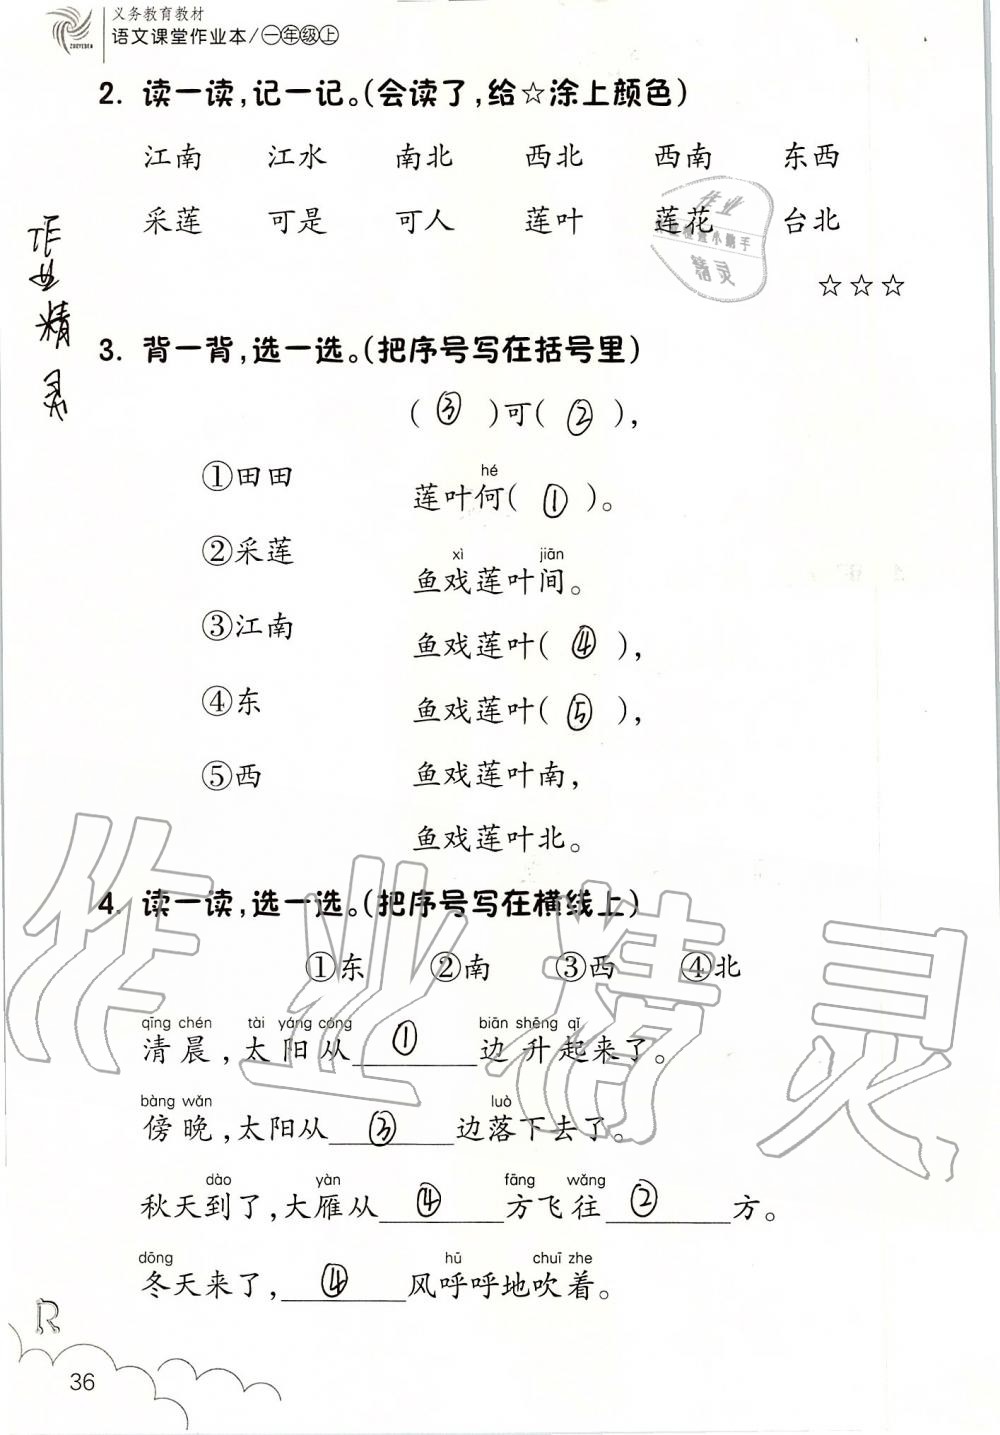 义务教育教材
语文课堂作业本/一年级上
ZUOYEBEN
2. 读一读，记一记。(会读了，给☆涂上颜色)
江南 江水 南北 西北 西南 东西
采莲 可是 可人 莲叶 莲花 台北
作业
检查小助手
精灵
☆☆☆
作业精灵
3. 背一背，选一选。(把序号写在括号里)
( ③ )可( ② )，
①田田
hé
莲叶何( ① )。
②采莲
xì jiān
鱼戏莲叶间。
③江南
鱼戏莲叶( ④ )，
④东
鱼戏莲叶( ⑤ )，
⑤西
鱼戏莲叶南，
鱼戏莲叶北。
4. 读一读，选一选。(把序号写在横线上)
①东 ②南 ③西 ④北
qīng chén tài yáng cóng biān shēng qǐ
清晨，太阳从 ① 边升起来了。
bàng wǎn luò
傍晚，太阳从 ③ 边落下去了。
dào yàn fāng wǎng
秋天到了，大雁从 ④ 方飞往 ② 方。
dōng hū chuī zhe
冬天来了， ④ 风呼呼地吹着。
作业精灵
R
36